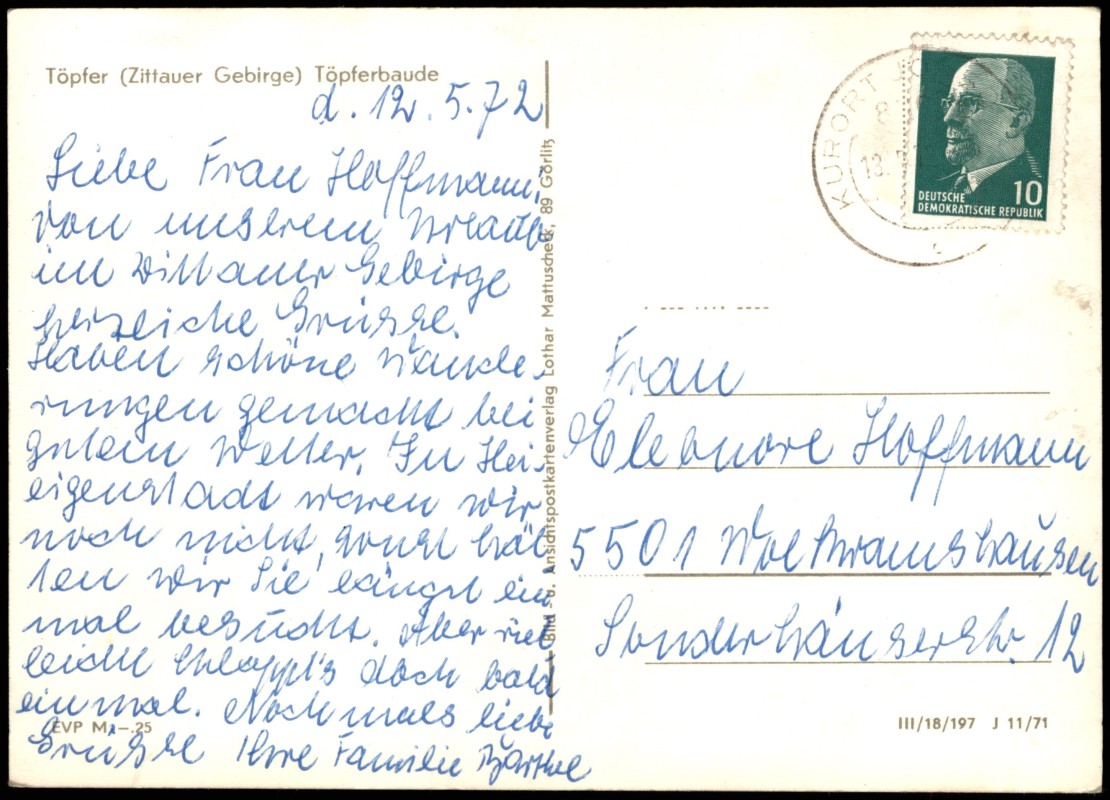 Töpfer (Zittauer Gebirge) Töpferbaude
d. 12. 5. 72
Liebe Frau Hoffmann,
von unserem Urlaub
im Zittauer Gebirge
herzliche Grüsse.
Haben schöne Wande-
rungen gemacht bei
gutem Wetter. In Hei-
ligenstadt waren wir
noch nicht, sonst hät-
ten wir Sie längst ein
mal besucht. Aber viel
leicht klappt's doch bald
einmal. Nochmals liebe
Grüsse Ihre Familie Barthel
EVP M -.25
Bild- u. Ansichtspostkartenverlag Lothar Mattuscheck, 89 Görlitz
KURORT
13.
DEUTSCHE
DEMOKRATISCHE REPUBLIK
10
Frau
Eleonore Hoffmann
5501 Wolkramshausen
Sondershäuserstr. 12
III/18/197 J 11/71